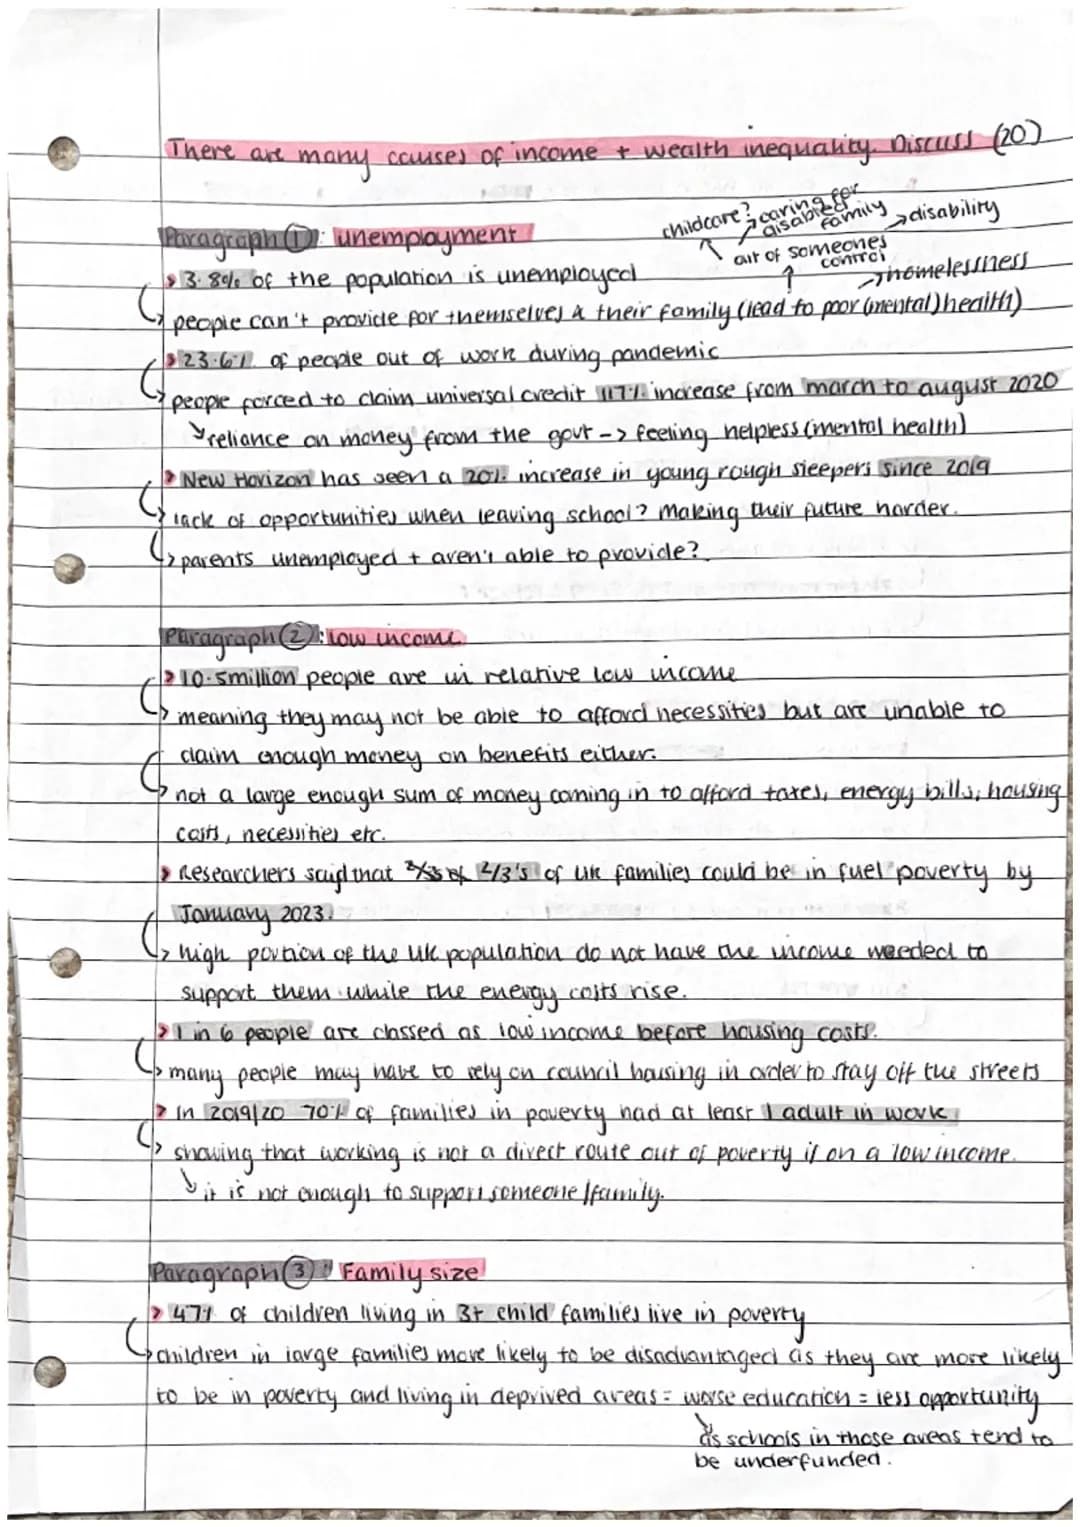 There are many causes of income + wealth inequality. Discuss (20)
childcare? caring for disabled family
out of someones control
disability
homelessness
Paragraph 1: unemployment
> 3.8% of the population is unemployed
people can't provide for themselves & their family (lead to poor (mental) health)
> 23.6% of people out of work during pandemic
people forced to claim universal credit 117% increase from march to august 2020
reliance on money from the govt -> feeling helpless (mental health)
> New Horizon has seen a 20% increase in young rough sleepers since 2019
lack of opportunities when leaving school? Making their future harder.
parents unemployed + aren't able to provide?
Paragraph 2: low income
> 10.5million people are in relative low income
meaning they may not be able to afford necessities but are unable to
claim enough money on benefits either.
not a large enough sum of money coming in to afford taxes, energy bills, housing
costs, necessities etc.
> Researchers said that 2/3's of UK families could be in fuel poverty by
January 2023.
high portion of the UK population do not have the income needed to
support them while the energy costs rise.
> 1 in 6 people are classed as low income before housing costs.
many people may have to rely on council housing in order to stay off the streets
> In 2019/20 70% of families in poverty had at least 1 adult in work
showing that working is not a direct route out of poverty if on a low income.
it is not enough to support someone/family.
Paragraph 3: Family size
> 47% of children living in 3+ child families live in poverty
children in large families more likely to be disadvantaged as they are more likely
to be in poverty and living in deprived areas = worse education = less opportunity
as schools in those areas tend to
be underfunded.